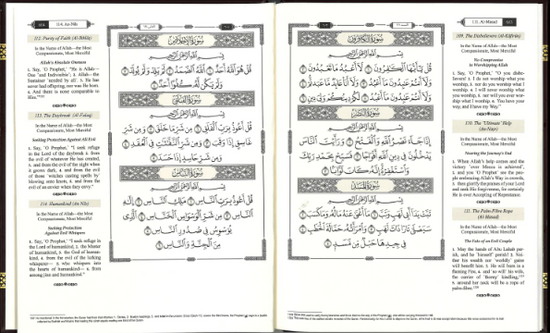 111. Al-Masad
603
109. The Disbelievers (Al-Kâfirûn)
In the Name of Allah—the Most
Compassionate, Most Merciful
No Compromise
in Worshipping Allah
1. Say, 'O Prophet,' "O you
disbelievers! 2. I do not worship what you
worship, 3. nor do you worship what I
worship. 4. I will never worship what
you worship, 5. nor will you ever wor-
ship what I worship. 6. You have your
way, and I have my Way."
110. The 'Ultimate' Help
(An-Naṣr)
In the Name of Allah—the Most
Compassionate, Most Merciful
Nearing the Journey's End
1. When Allah's help comes and the
victory 'over Mecca is achieved',
2. and you 'O Prophet' see the peo-
ple embracing Allah's Way in crowds,
3. then glorify the praises of your Lord
and seek His forgiveness, for certainly
He is ever Accepting of Repentance.
111. The Palm-Fibre Rope
(Al-Masad)
In the Name of Allah—the Most
Compassionate, Most Merciful
The Fate of an Evil Couple
1. May the hands of Abu Lahab per-
ish, and he 'himself' perish! 2. Nei-
ther his wealth nor 'worldly' gains
will benefit him. 3. He will burn in a
flaming Fire, 4. and 'so will' his wife,
the carrier of 'thorny' kindling,
5. around her neck will be a rope of
palm-fibre.
سُورَةُ الكَافِرُونَ
بِسْمِ اللَّهِ الرَّحْمَٰنِ الرَّحِيمِ
قُلْ يَٰٓأَيُّهَا ٱلْكَٰفِرُونَ ١ لَآ أَعْبُدُ مَا تَعْبُدُونَ ٢
وَلَآ أَنتُمْ عَٰبِدُونَ مَآ أَعْبُدُ ٣ وَلَآ أَنَا۠ عَابِدٌ مَّا عَبَدتُّمْ ٤
وَلَآ أَنتُمْ عَٰبِدُونَ مَآ أَعْبُدُ ٥ لَكُمْ دِينُكُمْ وَلِىَ دِينِ ٦
سُورَةُ النَّصْرِ
بِسْمِ اللَّهِ الرَّحْمَٰنِ الرَّحِيمِ
إِذَا جَآءَ نَصْرُ ٱللَّهِ وَٱلْفَتْحُ ١ وَرَأَيْتَ ٱلنَّاسَ
يَدْخُلُونَ فِى دِينِ ٱللَّهِ أَفْوَاجًا ٢ فَسَبِّحْ بِحَمْدِ رَبِّكَ
وَٱسْتَغْفِرْهُ إِنَّهُۥ كَانَ تَوَّابًا ٣
سُورَةُ المَسَدِ
بِسْمِ اللَّهِ الرَّحْمَٰنِ الرَّحِيمِ
تَبَّتْ يَدَآ أَبِى لَهَبٍ وَتَبَّ ١ مَآ أَغْنَىٰ عَنْهُ مَالُهُۥ وَمَا كَسَبَ ٢
سَيَصْلَىٰ نَارًا ذَاتَ لَهَبٍ ٣ وَٱمْرَأَتُهُۥ حَمَّالَةَ ٱلْحَطَبِ ٤
فِى جِيدِهَا حَبْلٌ مِّن مَّسَدٍۭ ٥
114. An-Nâs
سُورَةُ الإِخْلَاصِ
بِسْمِ اللَّهِ الرَّحْمَٰنِ الرَّحِيمِ
قُلْ هُوَ ٱللَّهُ أَحَدٌ ١ ٱللَّهُ ٱلصَّمَدُ ٢ لَمْ يَلِدْ وَلَمْ يُولَدْ ٣
وَلَمْ يَكُن لَّهُۥ كُفُوًا أَحَدٌۢ ٤
سُورَةُ الفَلَقِ
بِسْمِ اللَّهِ الرَّحْمَٰنِ الرَّحِيمِ
قُلْ أَعُوذُ بِرَبِّ ٱلْفَلَقِ ١ مِن شَرِّ مَا خَلَقَ ٢ وَمِن شَرِّ
غَاسِقٍ إِذَا وَقَبَ ٣ وَمِن شَرِّ ٱلنَّفَّٰثَٰتِ فِى ٱلْعُقَدِ ٤
وَمِن شَرِّ حَاسِدٍ إِذَا حَسَدَ ٥
سُورَةُ النَّاسِ
بِسْمِ اللَّهِ الرَّحْمَٰنِ الرَّحِيمِ
قُلْ أَعُوذُ بِرَبِّ ٱلنَّاسِ ١ مَلِكِ ٱلنَّاسِ ٢ إِلَٰهِ
ٱلنَّاسِ ٣ مِن شَرِّ ٱلْوَسْوَاسِ ٱلْخَنَّاسِ ٤ ٱلَّذِى
يُوَسْوِسُ فِى صُدُورِ ٱلنَّاسِ ٥
مِنَ ٱلْجِنَّةِ وَٱلنَّاسِ ٦
112. Purity of Faith (Al-Ikhlâṣ)
In the Name of Allah—the Most
Compassionate, Most Merciful
Allah's Absolute Oneness
1. Say, 'O Prophet,' "He is Allah—
One 'and Indivisible'; 2. Allah—the
Sustainer 'needed by all'. 3. He has
never had offspring, nor was He born.
4. And there is none comparable to
Him."
113. The Daybreak (Al-Falaq)
In the Name of Allah—the Most
Compassionate, Most Merciful
Seeking Protection Against All Evil
1. Say, 'O Prophet,' "I seek refuge
in the Lord of the daybreak 2. from
the evil of whatever He has created,
3. and from the evil of the night when
it grows dark, 4. and from the evil
of those 'witches casting spells by'
blowing onto knots, 5. and from the
evil of an envier when they envy."
114. Humankind (An-Nâs)
In the Name of Allah—the Most
Compassionate, Most Merciful
Seeking Protection
Against Evil Whispers
1. Say, 'O Prophet,' "I seek refuge in
the Lord of humankind, 2. the Master
of humankind, 3. the God of human-
kind, 4. from the evil of the lurking
whisperer— 5. who whispers into
the hearts of humankind— 6. from
among jinn and humankind."